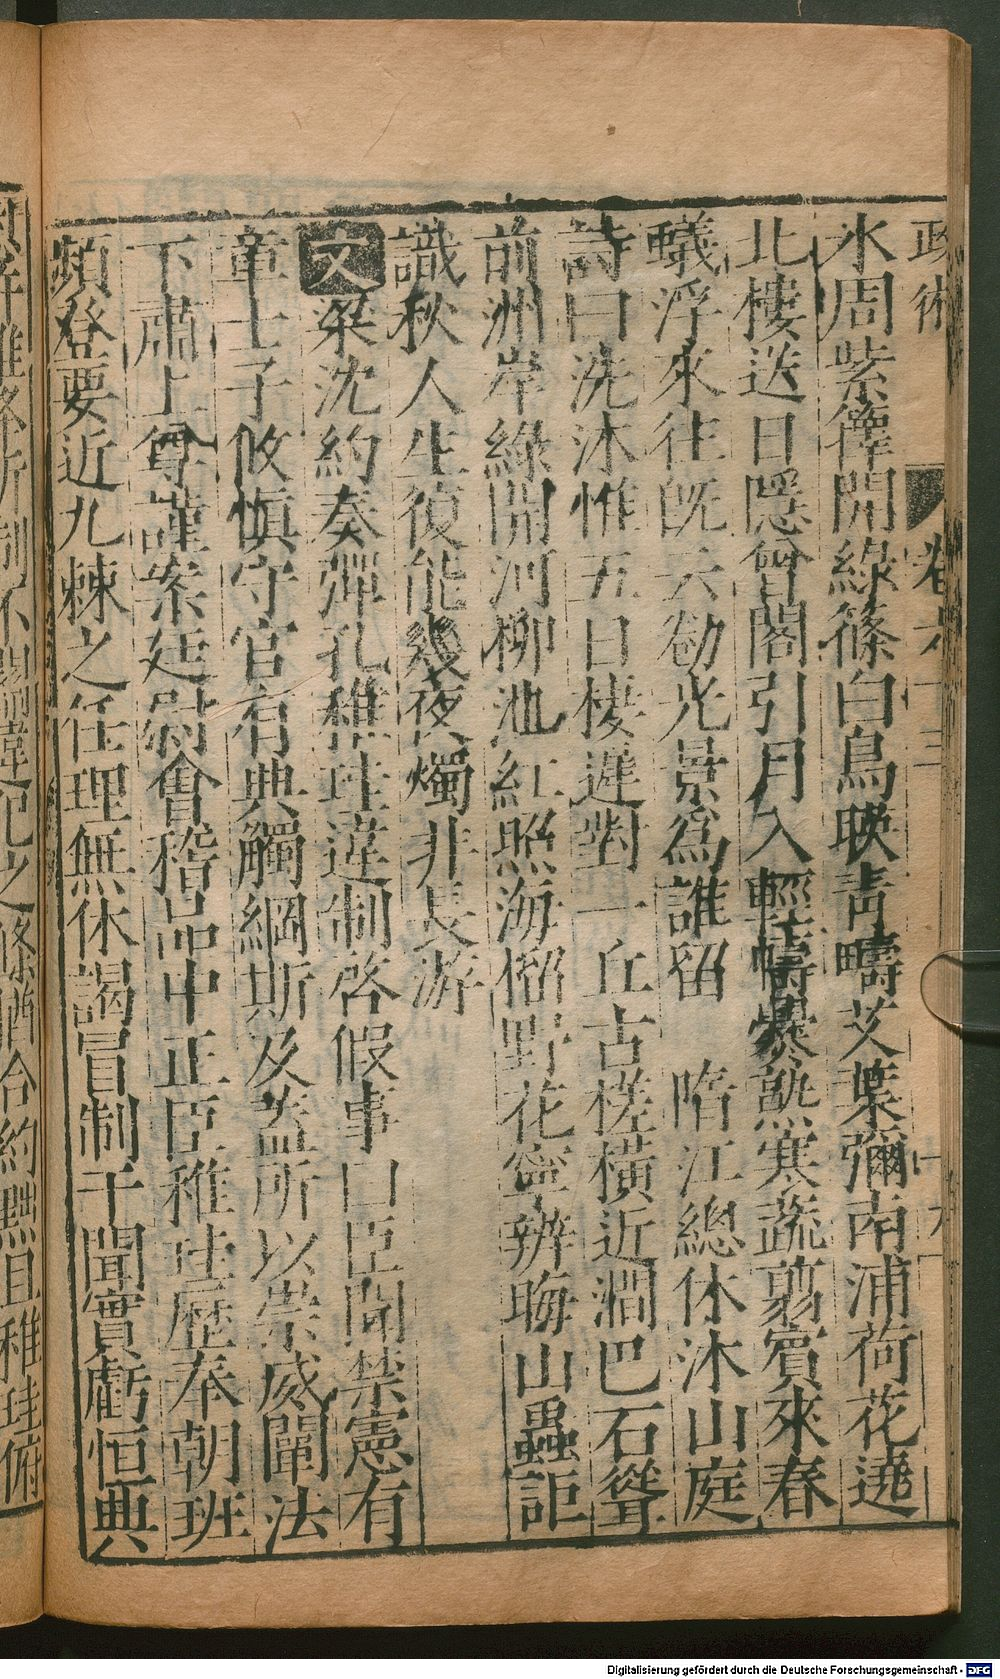 政術 卷六十三 十九
水周紫籜開綠篠白鳥暎青疇艾葉彌南浦荷花遶
北樓送日隱曾閣引月入輕幬爨熟寒蔬翦賓來春
蟻浮來往旣云勌光景爲誰留 隋江總休沐山庭
詩曰洗沐惟五日棲遲對一丘古槎橫近澗巴石聳
前洲岸綠開河柳池紅照海榴野花寧辨晦山蟲詎
識秋人生復能幾夜燭非長游
文梁沈約奏彈孔稚珪違制啓假事曰臣聞禁憲有
章士子攸愼守官有典觸綱斯及蓋所以崇威闡法
下肅上尊謹案廷尉會稽品中正臣稚珪歷奉朝班
頻登要近九棘之任理無休謁冒制干聞實虧恒典
制不 違犯之條酋合約黜且稚珪俯
Digitalisierung gefördert durch die Deutsche Forschungsgemeinschaft - DFG